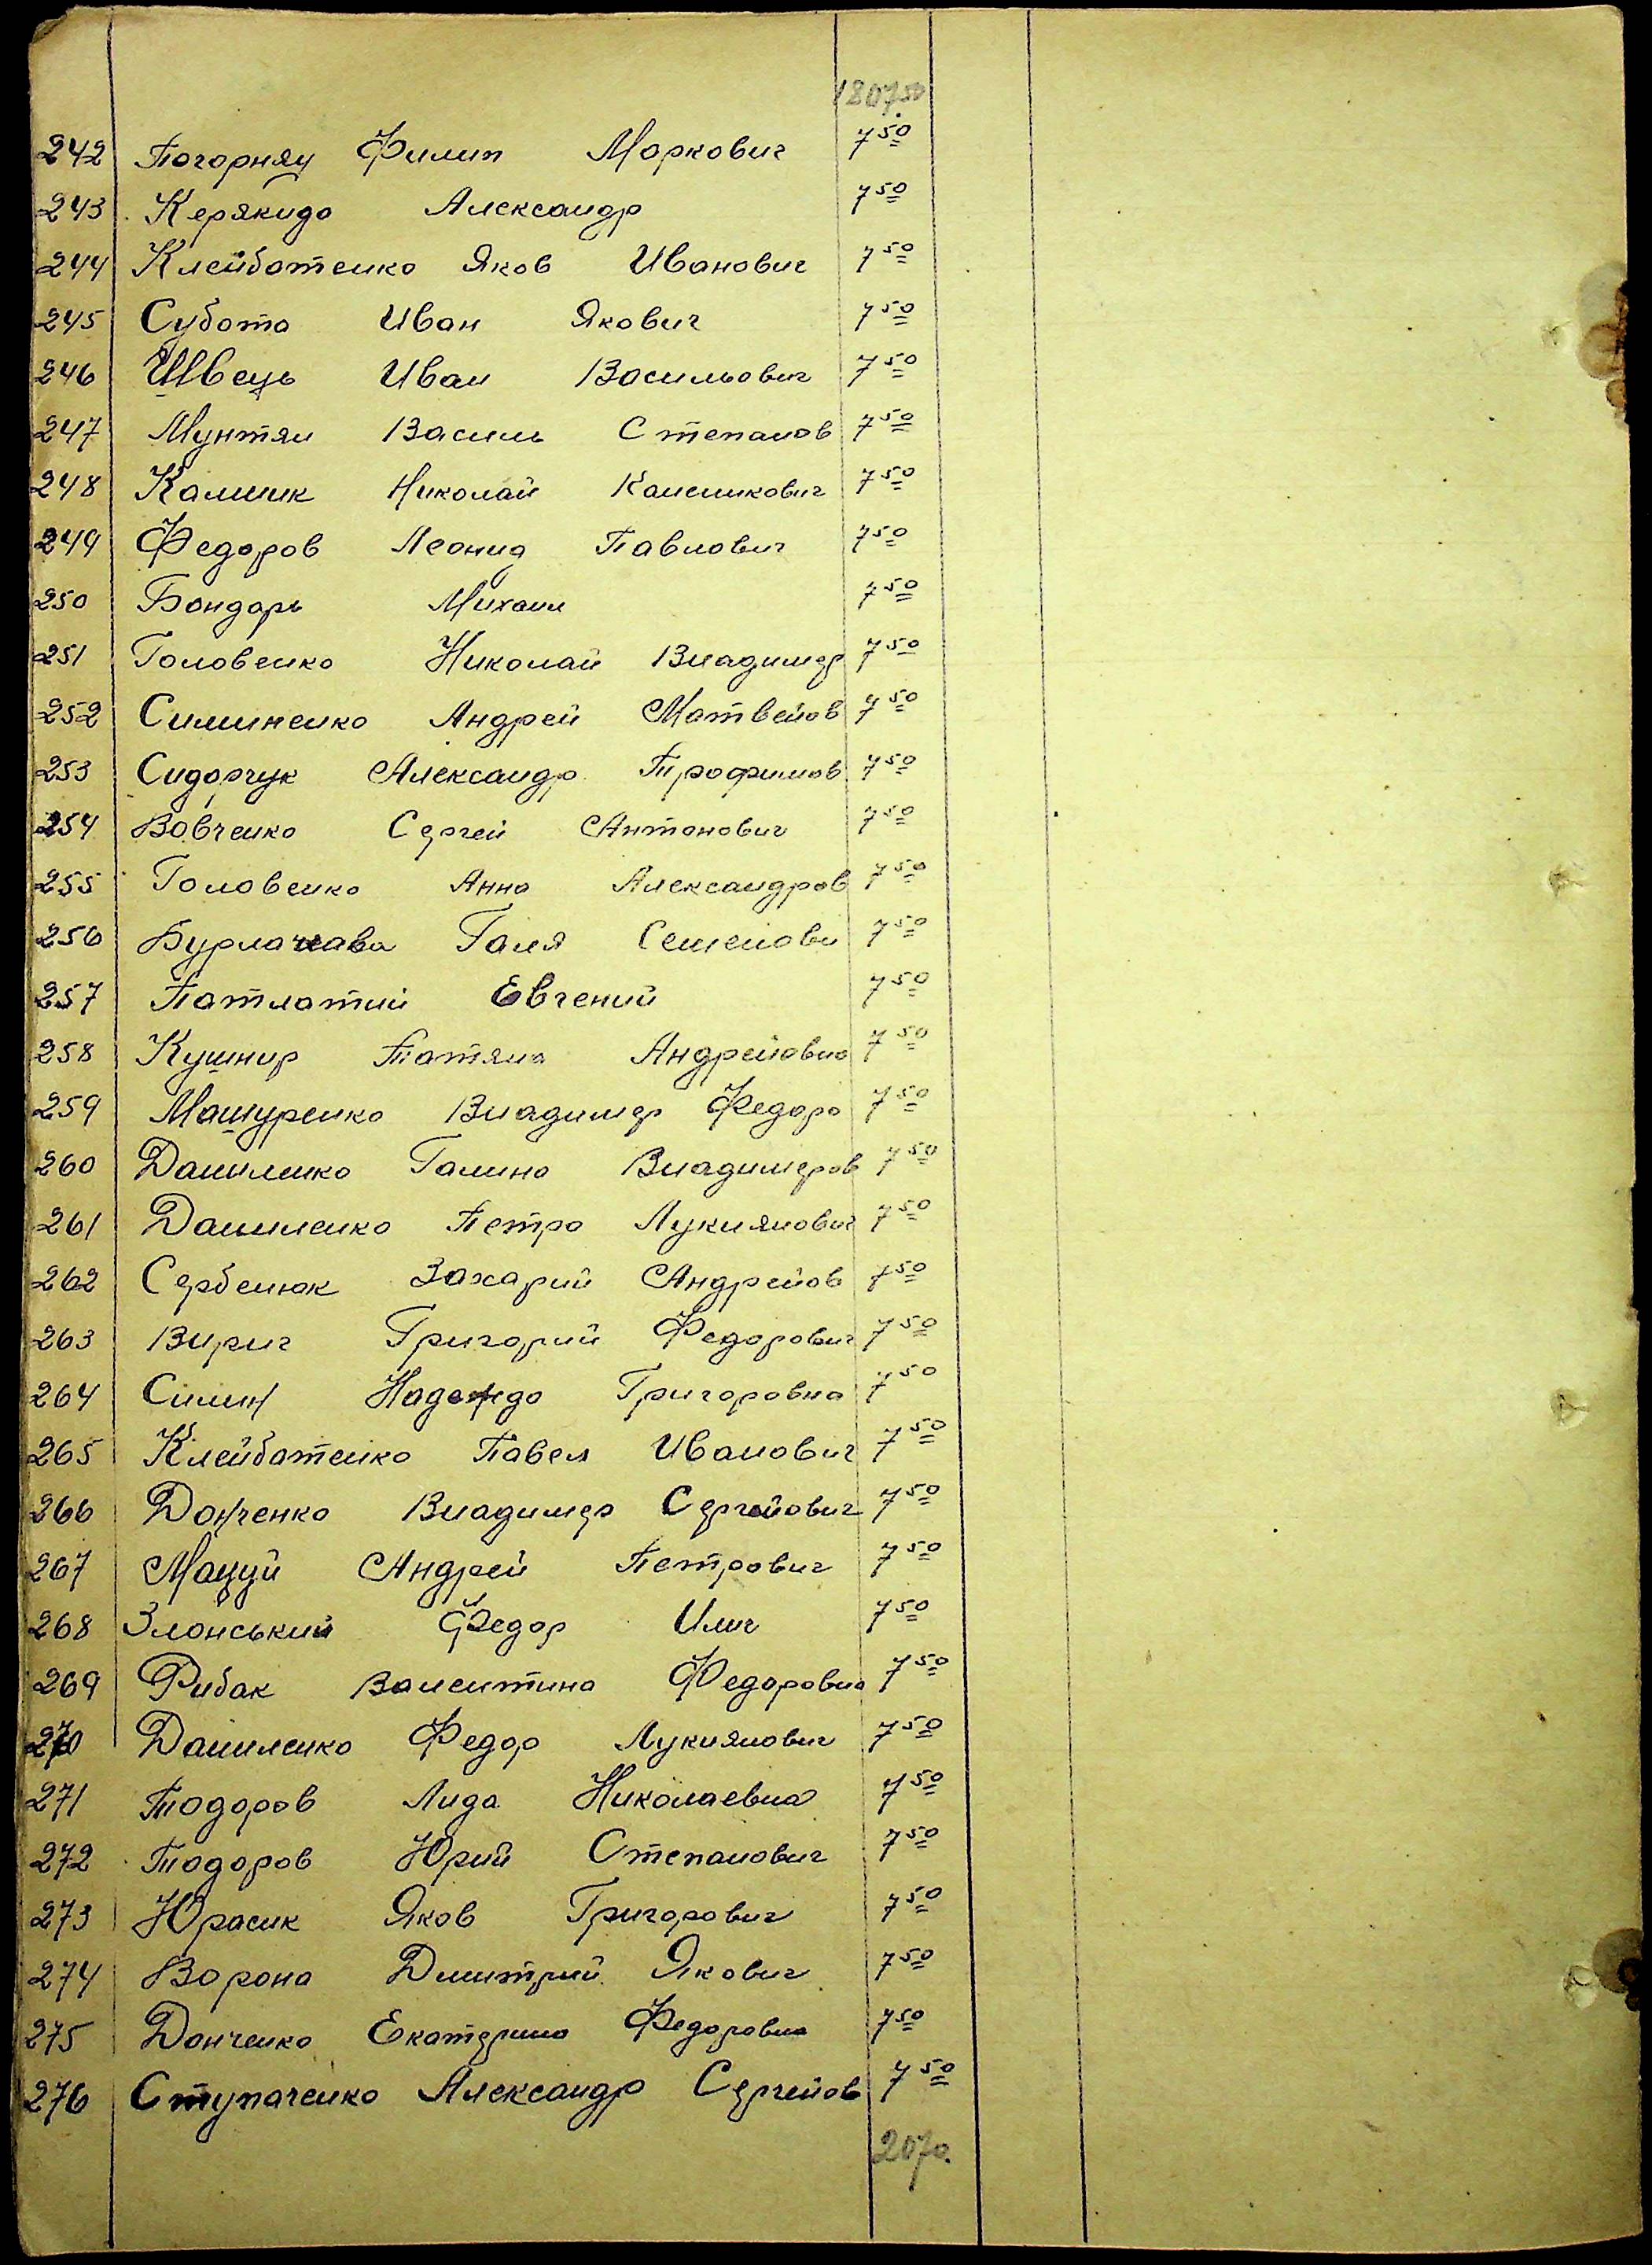 1807 50
242 Погорняц Филип Маркович 7 50
243 Керякидо Александр 7 50
244 Клейботенко Яков Иванович 7 50
245 Субота Иван Якович 7 50
246 Швець Иван Васильович 7 50
247 Мунтян Василь Степанов 7 50
248 Калиник Николай Каленикович 7 50
249 Федоров Леонид Павлович 7 50
250 Бондарь Михаил 7 50
251 Головенко Николай Владимер 7 50
252 Симиненко Андрей Матвейов 7 50
253 Сидорчук Александр Трофимов 7 50
254 Вовченко Сергей Антонович 7 50
255 Головенко Анна Александров 7 50
256 Галя Семенови 7 50
257 Патлатий Евгений 7 50
258 Кушнир Татяна Андрейовна 7 50
259 Машуренко Владимер Федоро 7 50
260 Даниленко Галина Владимеров 7 50
261 Даниленко Петро Лукиянович 7 50
262 Сербенюк Захарий Андрейов 7 50
263 Вирич Григорий Федорович 7 50
264 Надежда Григоровна 7 50
265 Клейботенко Павел Иванович 7 50
266 Донченко Владимер Сергейович 7 50
267 Мацуй Андрей Петрович 7 50
268 Злонський Федор Илич 7 50
269 Рибак Валентина Федоровна 7 50
270 Даниленко Федор Лукиянович 7 50
271 Тодоров Лида Николаевна 7 50
272 Тодоров Юрий Степанович 7 50
273 Юрасик Яков Григорович 7 50
274 Ворона Дмитрий Якович 7 50
275 Донченко Екатерина Федоровна 7 50
276 Ступаченко Александр Сергейов 7 50
2070.